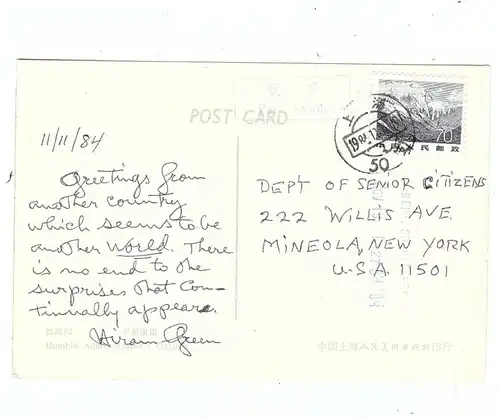 POST CARD
11/11/84
Greetings from
another country
which seems to be
another world. There
is no end to the
surprises that con-
tinually appear.
Hiram Green
70
50
DEPT OF SENIOR CITIZENS
222 WILLIS AVE.
MINEOLA, NEW YORK
U.S.A. 11501